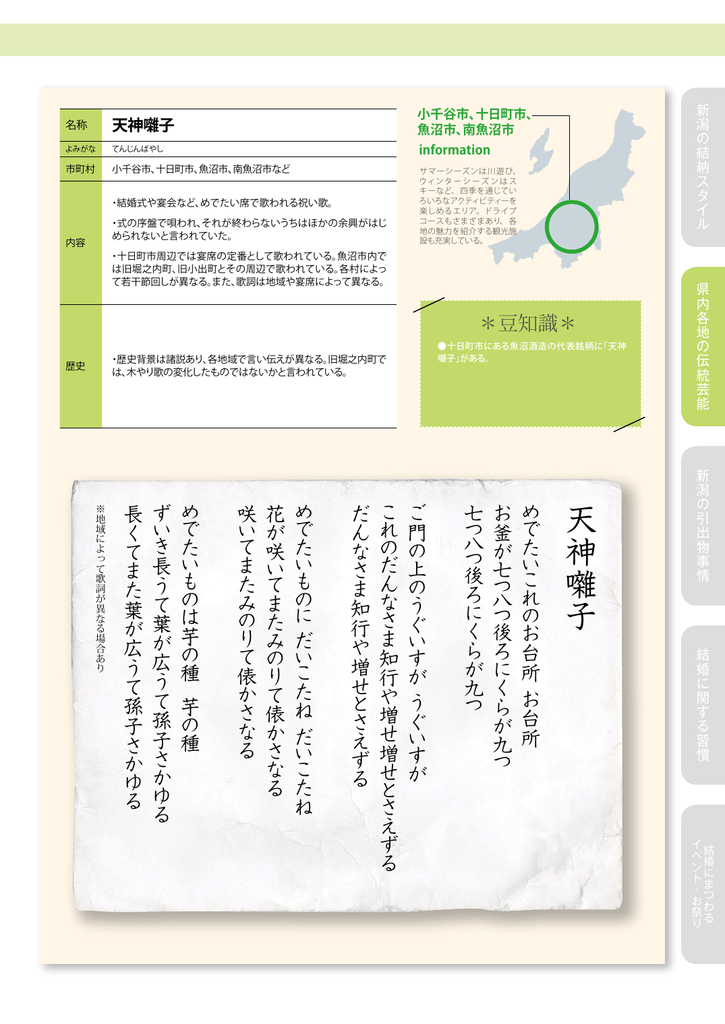 名称
天神囃子
よみがな
てんじんばやし
市町村
小千谷市、十日町市、魚沼市、南魚沼市など
内容
・結婚式や宴会など、めでたい席で歌われる祝い歌。
・式の序盤で唄われ、それが終わらないうちはほかの余興がはじ
められないと言われていた。
・十日町市周辺では宴席の定番として歌われている。魚沼市内で
は旧堀之内町、旧小出町とその周辺で歌われている。各村によっ
て若干節回しが異なる。また、歌詞は地域や宴席によって異なる。
歴史
・歴史背景は諸説あり、各地域で言い伝えが異なる。旧堀之内町で
は、木やり歌の変化したものではないかと言われている。
小千谷市、十日町市、
魚沼市、南魚沼市
information
サマーシーズンは川遊び、
ウィンターシーズンはス
キーなど、四季を通じてい
ろいろなアクティビティーを
楽しめるエリア。ドライブ
コースもさまざまあり、各
地の魅力を紹介する観光施
設も充実している。
＊豆知識＊
●十日町市にある魚沼酒造の代表銘柄に「天神
囃子」がある。
天神囃子
めでたいこれのお台所 お台所
お釜が七つ八つ後ろにくらが九つ
七つ八つ後ろにくらが九つ
ご門の上のうぐいすが うぐいすが
これのだんなさま知行や増せ増せとさえずる
だんなさま知行や増せとさえずる
めでたいものに だいこたね だいこたね
花が咲いてまたみのりて俵かさなる
咲いてまたみのりて俵かさなる
めでたいものは芋の種 芋の種
ずいき長うて葉が広うて孫子さかゆる
長くてまた葉が広うて孫子さかゆる
※地域によって歌詞が異なる場合あり
新潟の結納スタイル
県内各地の伝統芸能
新潟の引出物事情
結婚に関する習慣
結婚にまつわる
イベント・お祭り